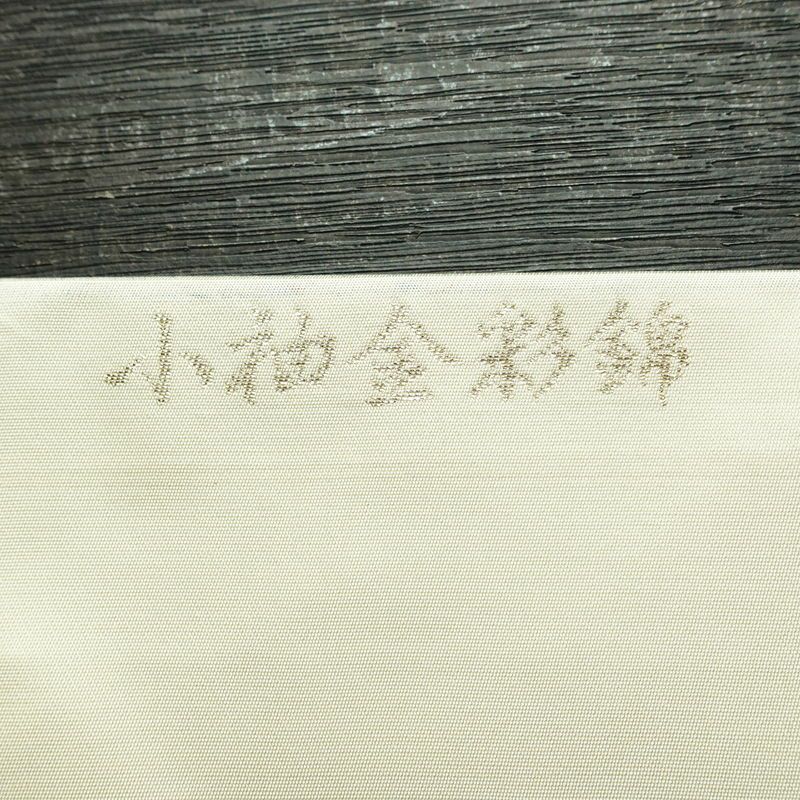 小袖金彩錦